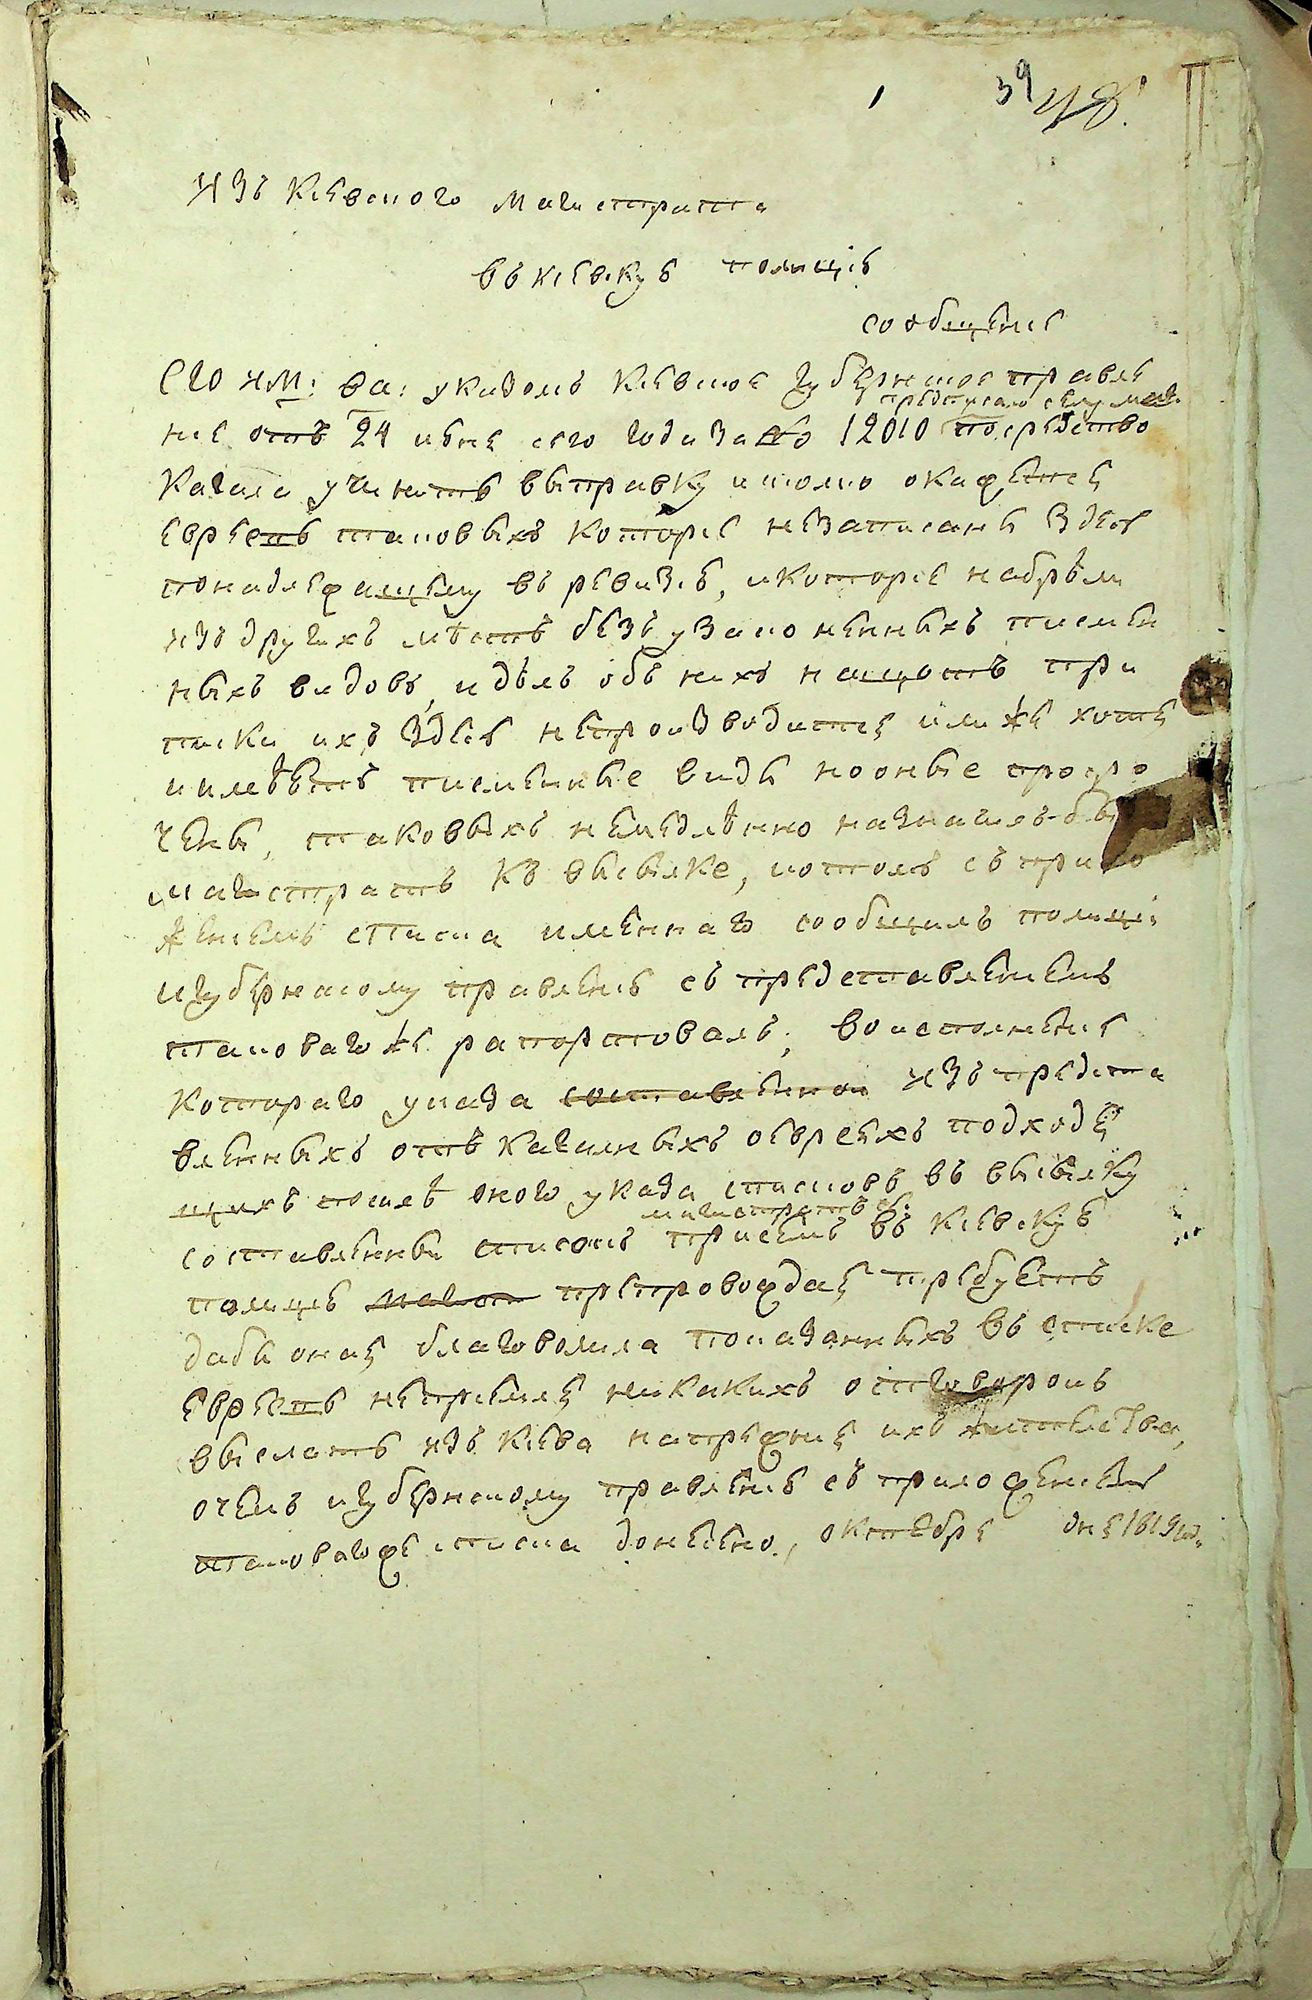 39 48.
Изъ Киевского Магистрата
въ киевскую полицію
сообщеніе
Его им: ва: указомъ Киевское губернское правле
предписало сему маги
ніе отъ 24 июня сего года за № 12010 посредство
кагала учинить выправку и сколко окажется
евреевъ таковыхъ которіе незаписаны здесь
понадлежащему въ ревизіе, и которіе набрели
изъ другихъ местъ безъ узаконенныхъ писмен
ныхъ видовъ, и делъ объ нихъ нащотъ при
писки ихъ здесь непроизводится или же хотя
и имеютъ писменные виды но оные просро
чены, таковыхъ немедленно назначилъ бы
магистратъ къ высылке, и о томъ съ прило
женіемъ списка именнаго сообщилъ полиціи
и губернскому правленію съ представленіемъ
таковаго же рапортовалъ, во исполненіе
котораго указа изъ предста
вленныхъ отъ кагалныхъ о евреяхъ подходя
щихъ после оного указа списковъ въ высылку
магистратъ
составленный списокъ присемъ въ Киевскую
полицію препровождая требуетъ
дабы оная благоволила показанныхъ въ списке
евреевъ неприемля никакихъ отговорокъ
выслать изъ Киева напрежния ихъ жителства,
о чемъ и губернскому правленію съ приложеніемъ
таковаго же списка донесено, октября дня 1819 го.